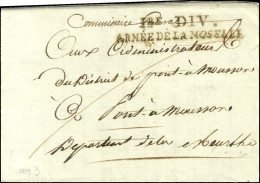 Commissaire
1ERE DIV.
ARMÉE DE LA MOSELLE
Aux Administrateurs
Du District de pont-à Mousson
à Pont-à Mousson
Département de la Meurthe